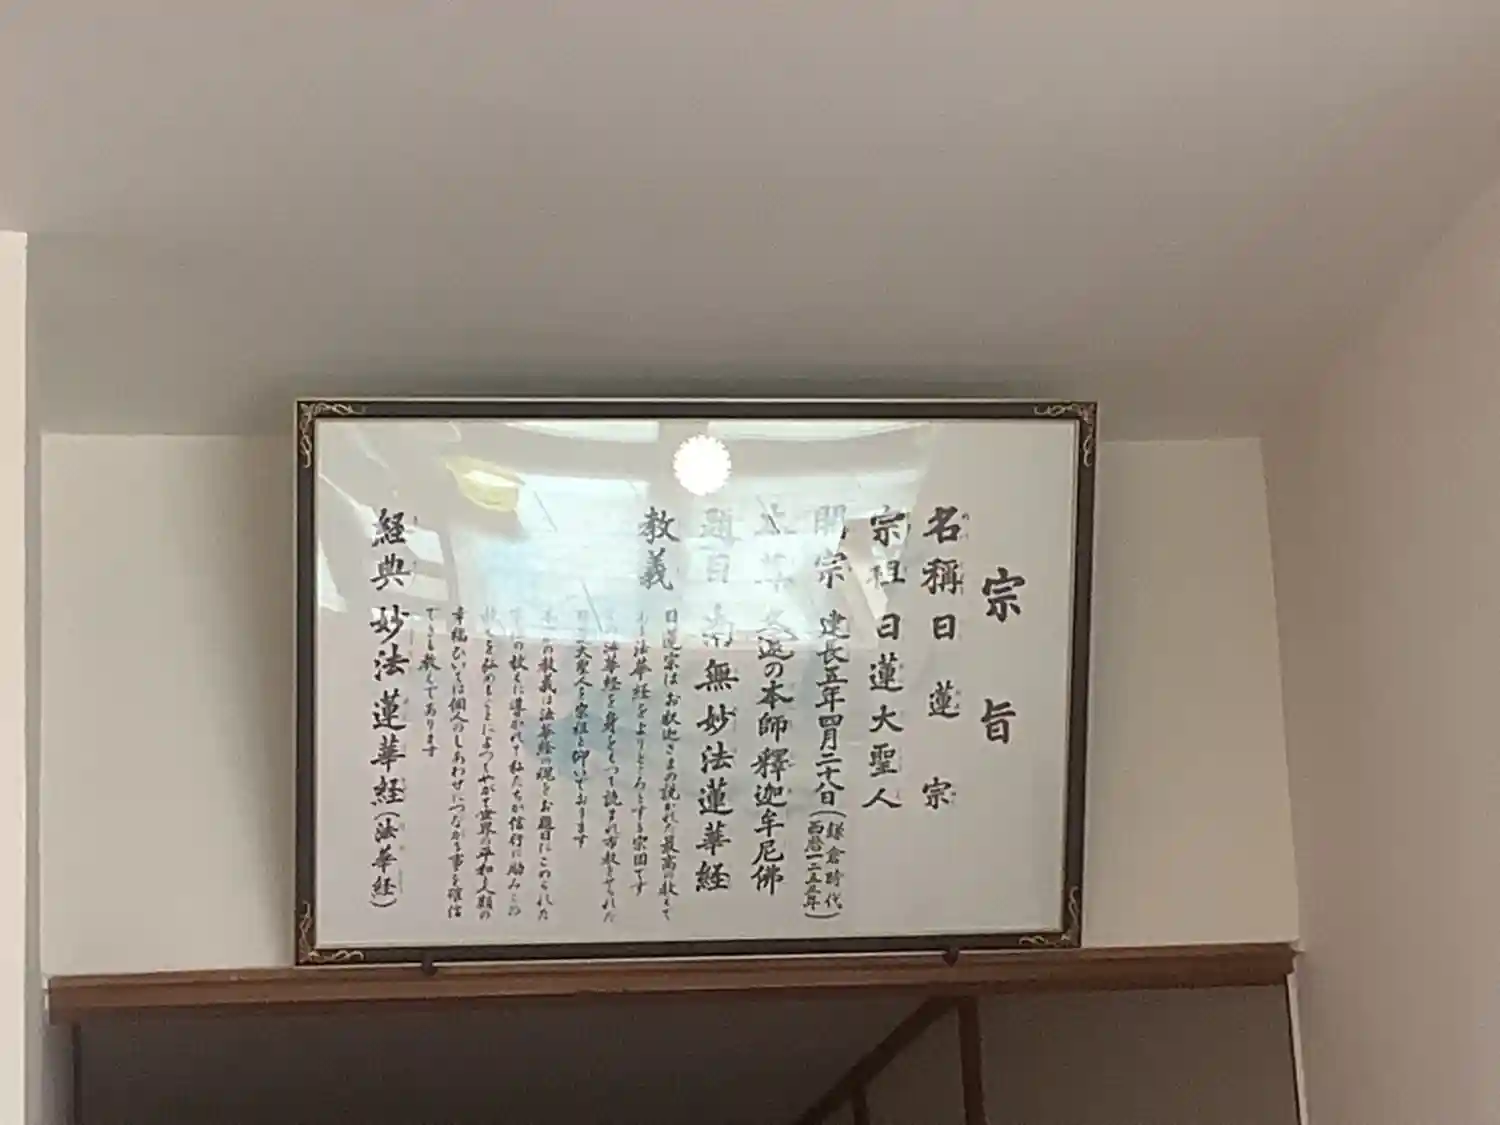 宗旨
名稱 日蓮宗
宗祖 日蓮大聖人
開宗 建長五年四月二十八日(鎌倉時代 西暦一二五三年)
久遠の本師釋迦牟尼佛
題目 南無妙法蓮華経
教義
日蓮宗は お釈迦さまの説かれた最高の教えで
ある法華経をよりどころとする宗団です
法華経を身をもって読まれ布教させられた
日蓮大聖人を宗祖と仰いでおります
の教義は法華経の魂をお題目にこめられた
の教えに導かれて私たちが信行に励みこの
を弘めることによってやがて世界の平和と人類の
幸福ひいては個人のしあわせにつながる事を確信
する教えであります
経典 妙法蓮華経(法華経)